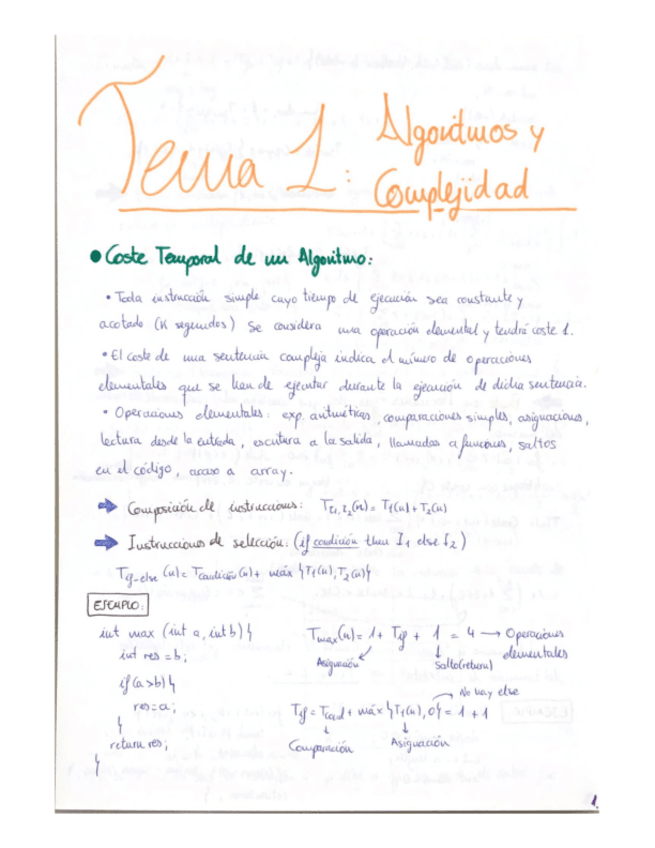 Tema 1: Algoritmos y
Complejidad
• Coste Temporal de un Algoritmo:
• Toda instrucción simple cuyo tiempo de ejecución sea constante y
acotado (K segundos) se considera una operación elemental y tendrá coste 1.
• El coste de una sentencia compleja indica el número de operaciones
elementales que se han de ejecutar durante la ejecución de dicha sentencia.
• Operaciones elementales: exp. aritméticas, comparaciones simples, asignaciones,
lectura desde la entrada, escritura a la salida, llamadas a funciones, saltos
en el código, acceso a array.
➡ Composición de instrucciones: T_{I1,I2}(n) = T1(n) + T2(n)
➡ Instrucciones de selección: (if condición then I1 else I2)
T_{if-else}(n) = T_{condición}(n) + máx {T1(n), T2(n)}
EJEMPLO:
int max (int a, int b) {
int res = b;
if (a>b) {
res = a;
}
return res;
}
T_{max}(n) = 1 + T_{if} + 1 = 4 → Operaciones
elementales
Asignación
Salto (return)
No hay else
T_{if} = T_{cond} + máx {T1(n), 0} = 1 + 1
Comparación
Asignación
1.